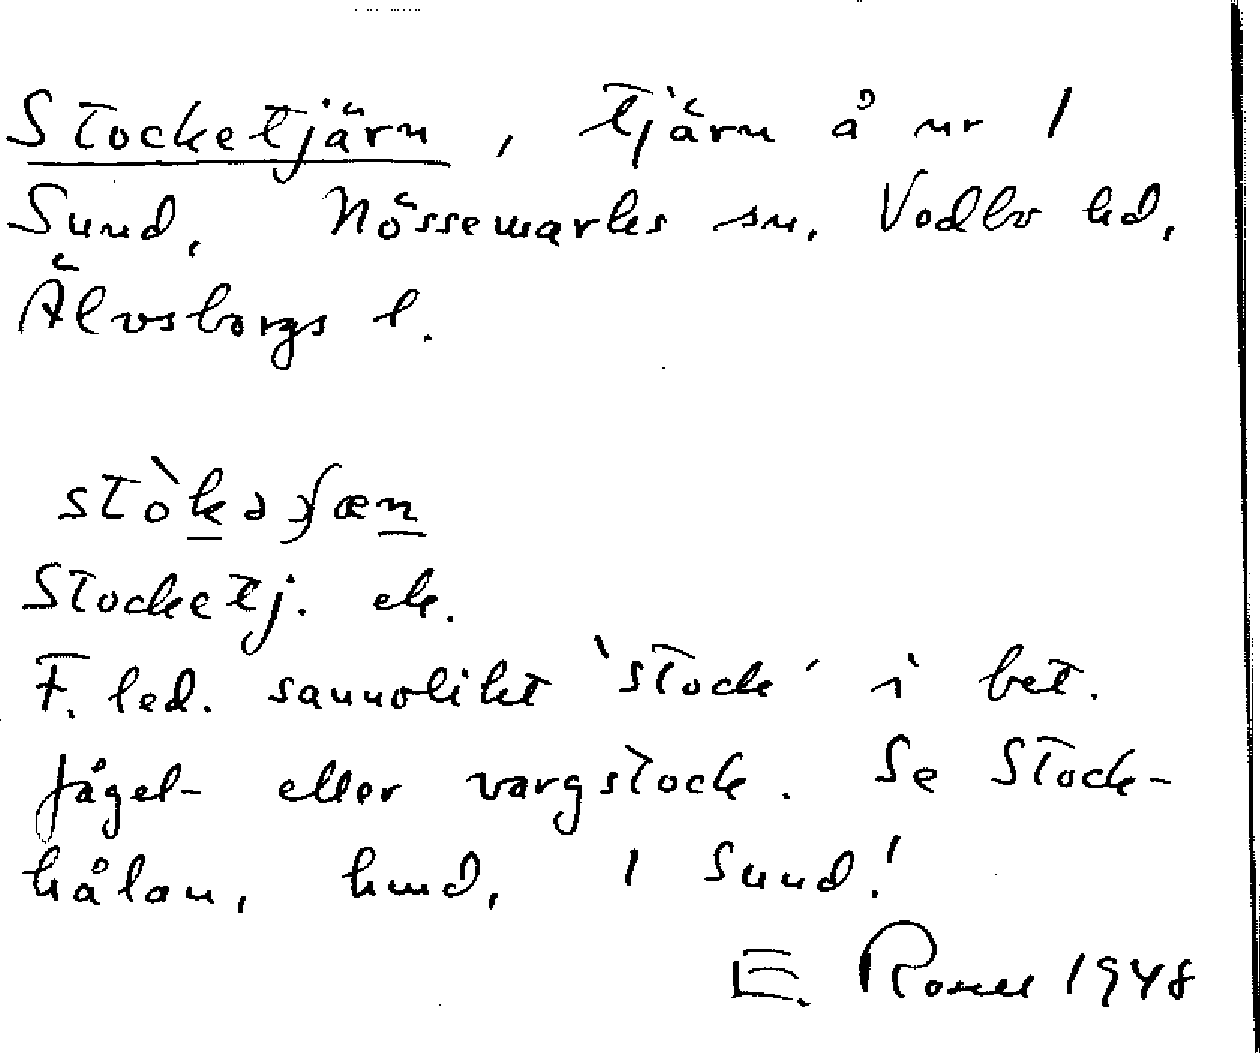 Stocketjärn, tjärn å nr 1
Sund, Nössemarks sn, Vedbo hd,
Älvsborgs l.
Stocketj. ek.
F. led. sannolikt 'stock' i bet.
fågel- eller vargstock. Se Stock-
hålan, hmd, 1 Sund!
E. 1948